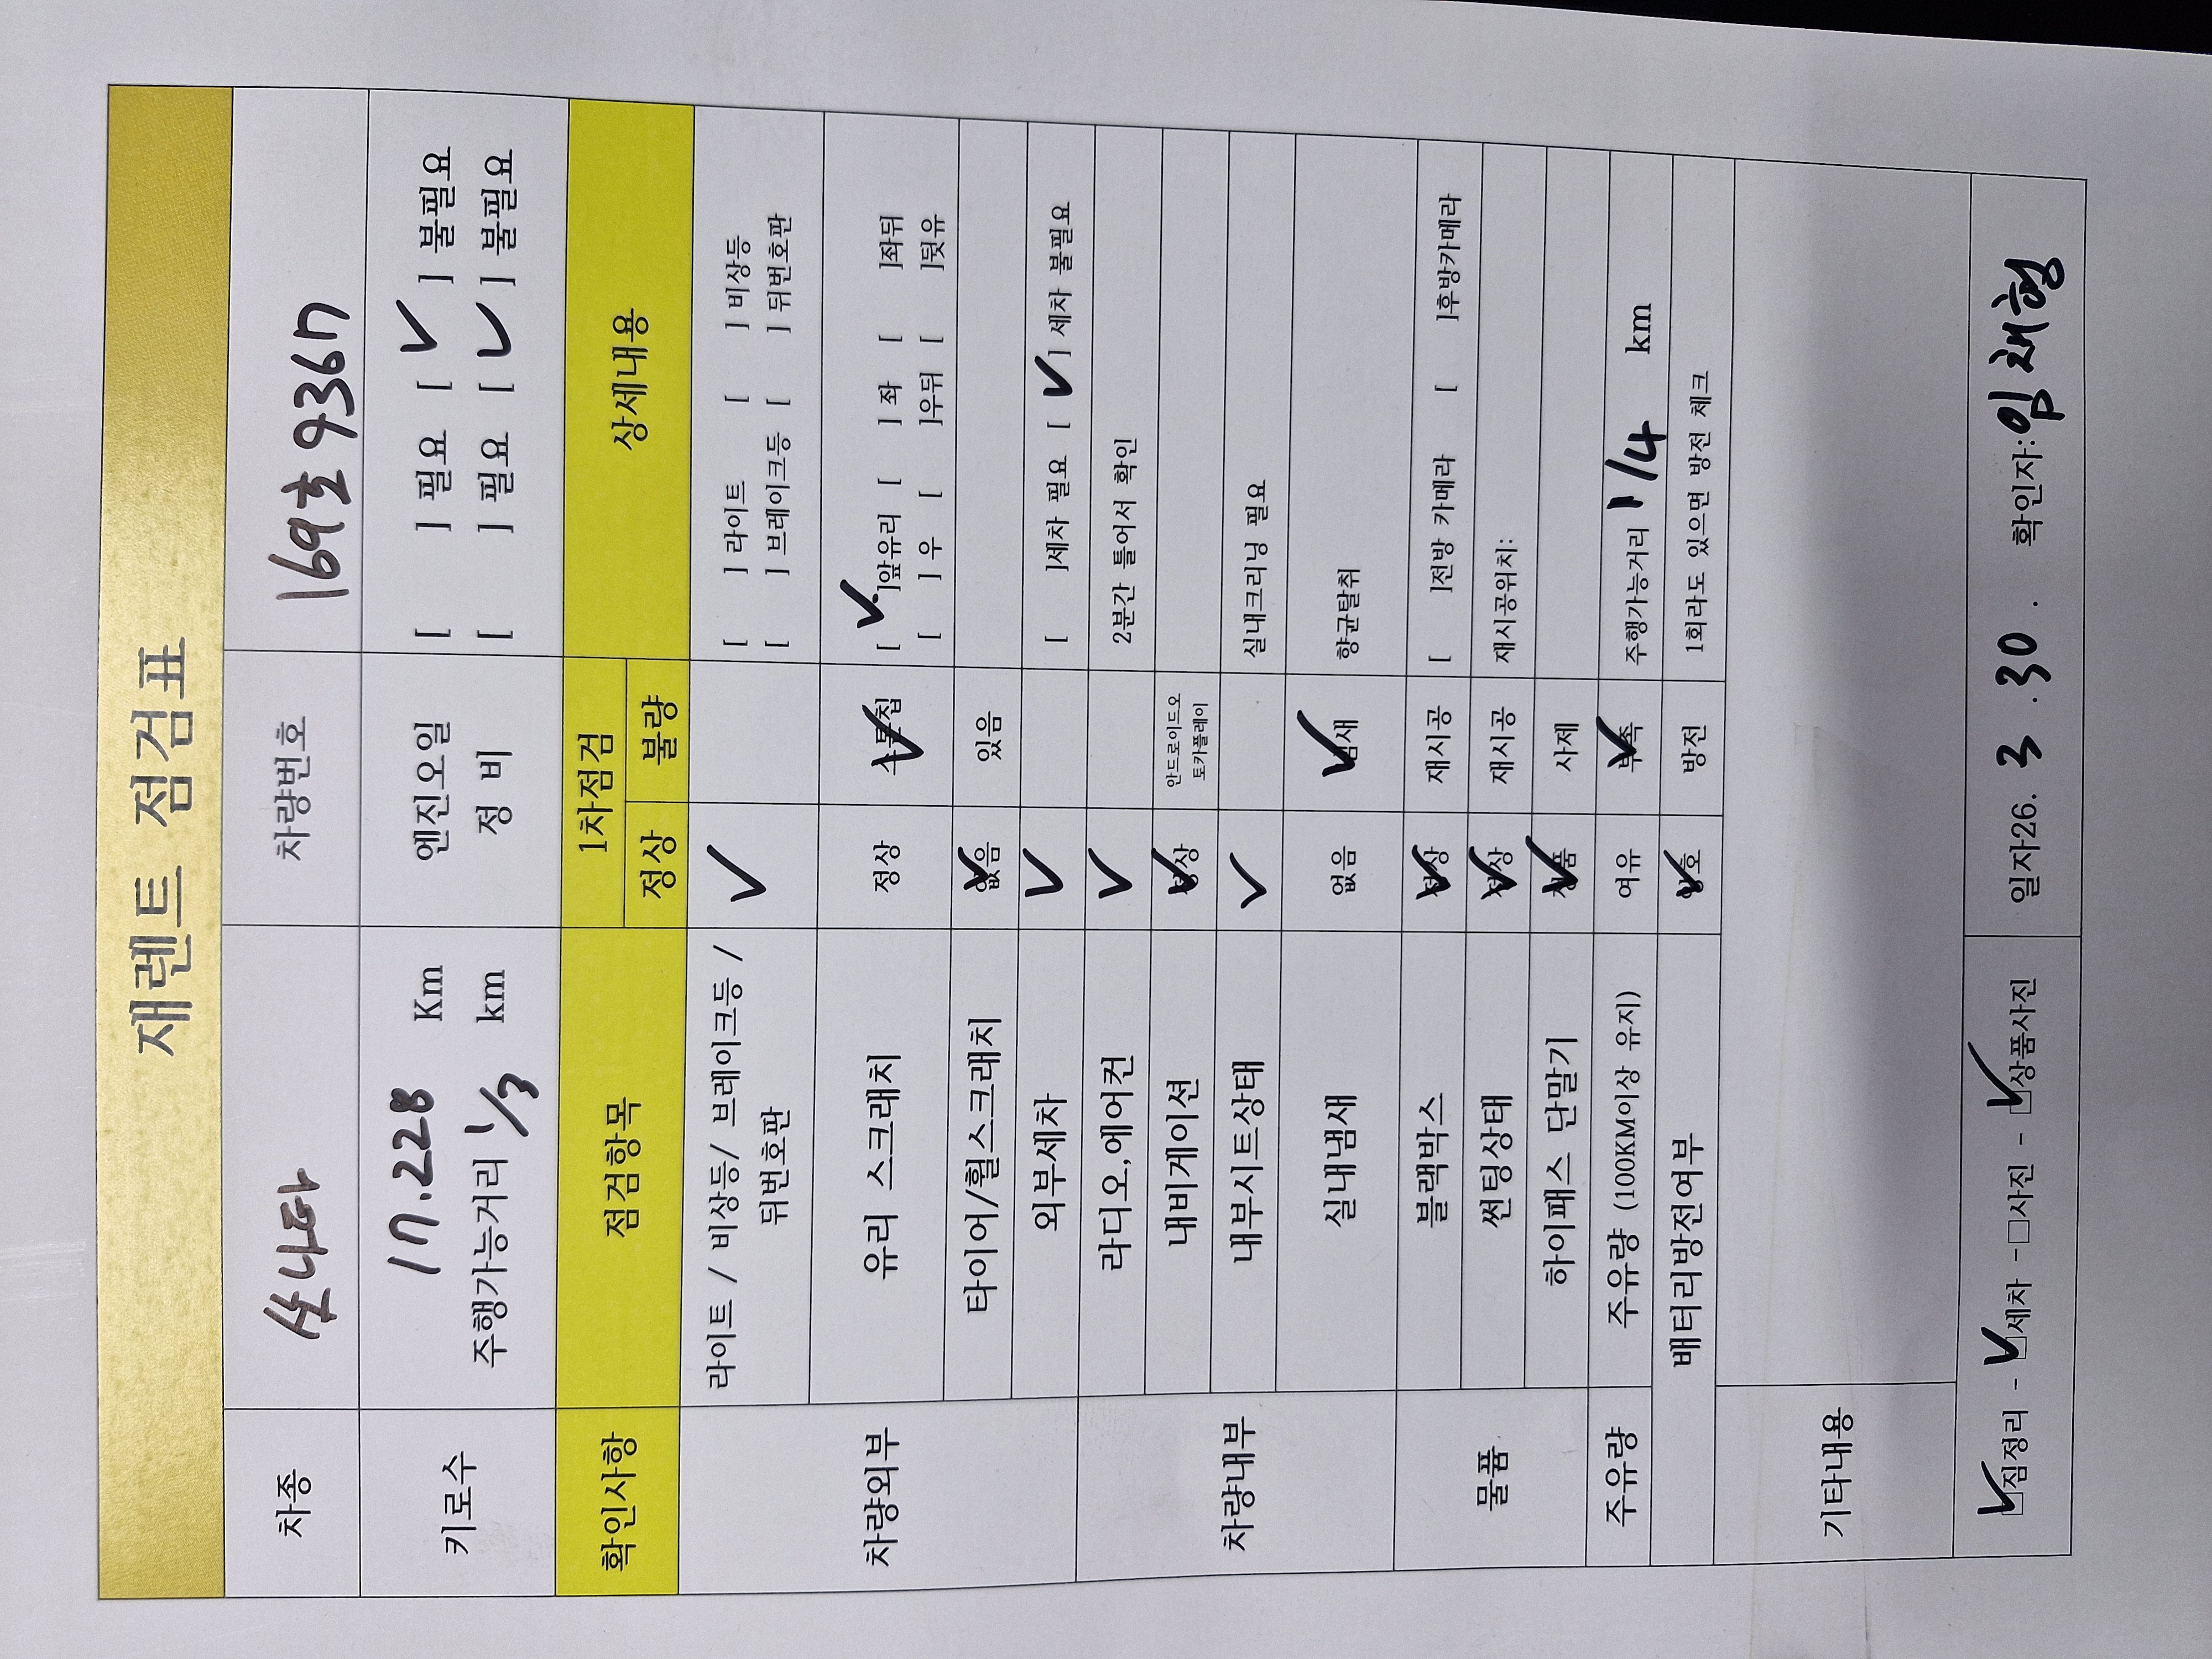 재렌트 점검표
차종 쏘나타 차량번호 169호 9367
키로수 17.228 Km 엔진오일 [ ] 필요 [ ✓ ] 불필요
주행가능거리 1/3 km 정 비 [ ] 필요 [ ✓ ] 불필요
확인사항 점검항목 1차점검 상세내용
정상 불량
차량외부 라이트 / 비상등/ 브레이크등 / ✓ [ ] 라이트 [ ] 비상등
뒤번호판 [ ] 브레이크등 [ ] 뒤번호판
유리 스크래치 정상 ✓ [ ✓ ]앞유리 [ ] 좌 [ ]좌뒤
[ ] 우 [ ]우뒤 [ ]뒷유
타이어/휠스크래치 없음 ✓ 있음
외부세차 ✓ [ ]세차 필요 [ ✓ ] 세차 불필요
차량내부 라디오,에어컨 ✓ 2분간 틀어서 확인
내비게이션 정상 ✓ 안드로이드오
토카플레이
내부시트상태 ✓ 실내크리닝 필요
실내냄새 없음 냄새 ✓ 향균탈취
물품 블랙박스 정상 ✓ 재시공 [ ]전방 카메라 [ ]후방카메라
썬팅상태 정상 ✓ 재시공 재시공위치:
하이패스 단말기 정품 ✓ 사제
주유량 주유량 (100KM이상 유지) 여유 부족 ✓ 주행가능거리 1/4 km
배터리방전여부 양호 ✓ 방전 1회라도 있으면 방전 체크
기타내용
☑짐정리 - ☑세차 -□사진 - ☑상품사진 일자26. 3 .30 . 확인자:임채형